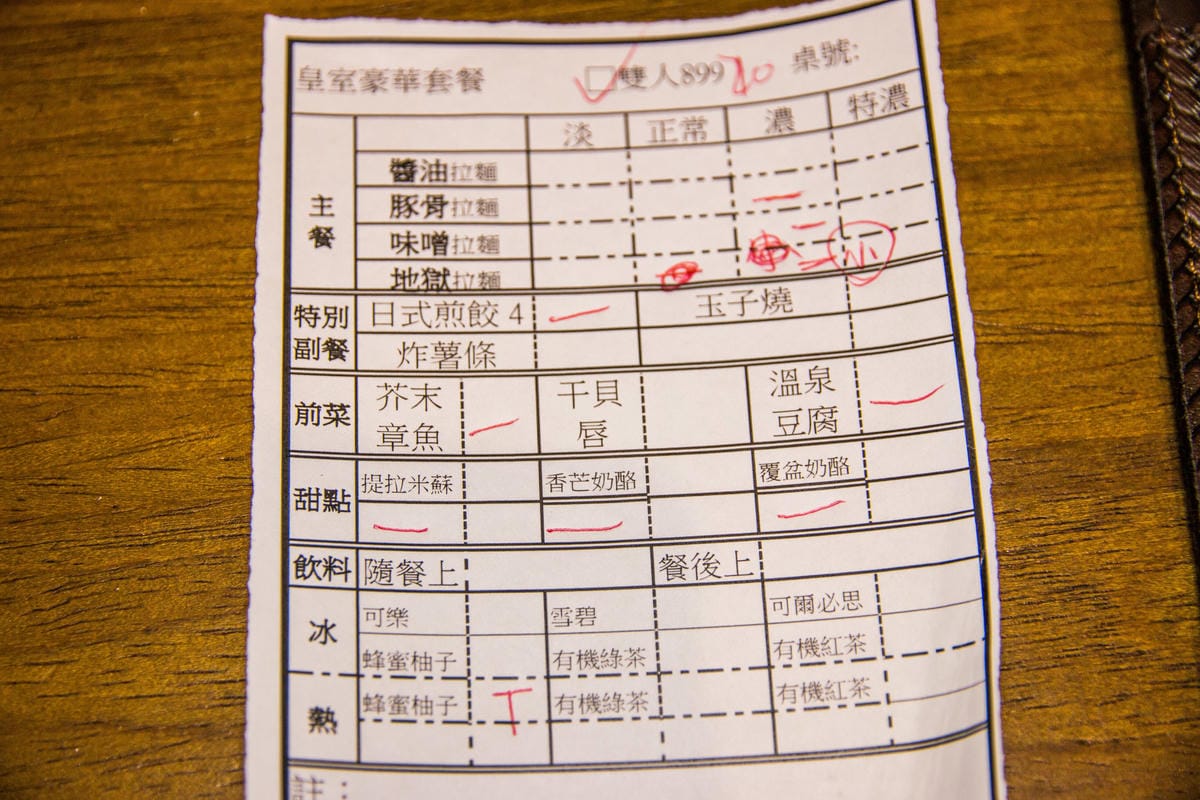 皇室豪華套餐 □雙人899 桌號:
淡 正常 濃 特濃
主餐
醬油拉麵
豚骨拉麵 一
味噌拉麵
地獄拉麵
特別副餐
日式煎餃 4 一 玉子燒
炸薯條
前菜
芥末章魚 一 干貝唇 溫泉豆腐 一
甜點
提拉米蘇 香芒奶酪 覆盆奶酪
一 一 一
飲料 隨餐上 餐後上
冰
可樂 雪碧 可爾必思
蜂蜜柚子 有機綠茶 有機紅茶
熱
蜂蜜柚子 T 有機綠茶 有機紅茶
註：